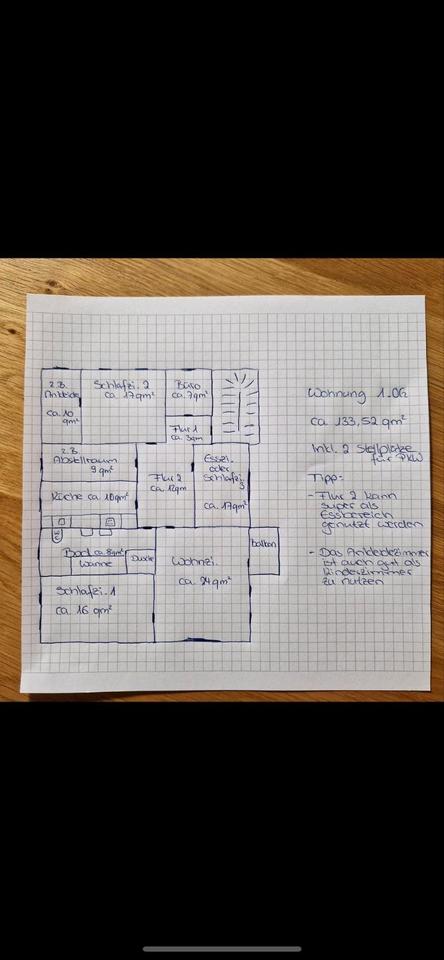 z.B.
Ankleide
ca. 10
qm²
Schlafzi. 2
ca. 17qm²
Büro
ca. 7qm²
Flur 1
ca. 3qm
z.B.
Abstellraum
9 qm²
Küche ca. 10qm²
Flur 2
ca. 12qm
Esszi.
oder
Schlafzi.
3
ca. 17qm²
Bad ca. 8qm²
Wanne
Dusche
Wohnzi.
ca. 24qm²
Balkon
Schlafzi. 1
ca. 16 qm²
Wohnung 1.OG
ca. 133,52 qm²
Inkl. 2 Stellplätze
für PKW
Tipp:
- Flur 2 kann
super als
Essbereich
genutzt werden
- Das Ankleidezimmer
ist auch gut als
Kinderzimmer
zu nutzen